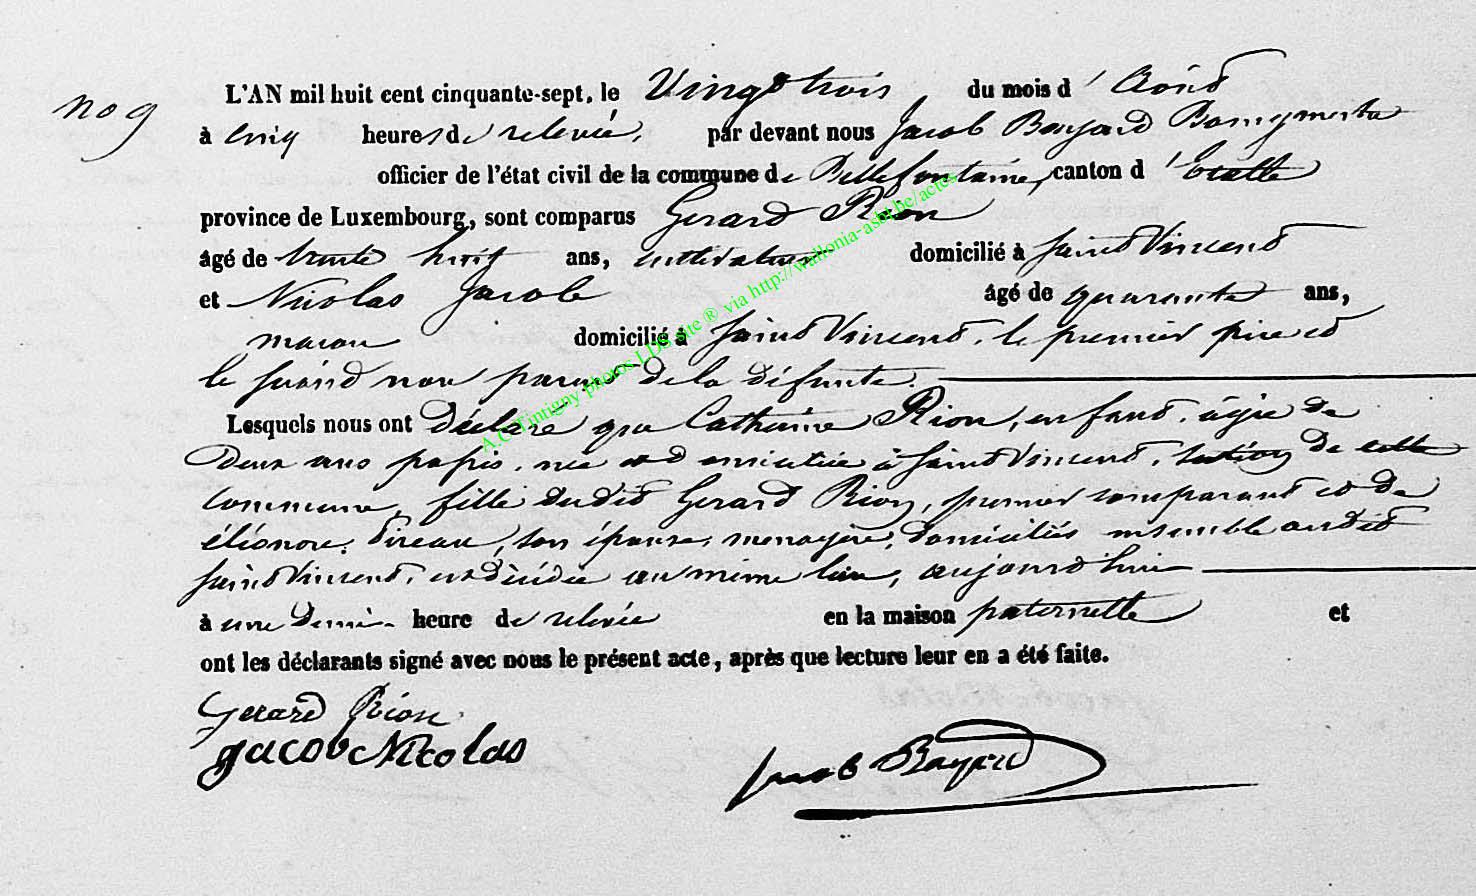 no 9
L'AN mil huit cent cinquante-sept, le Vingt trois du mois d'Août
à cinq heures de relevée, par devant nous Jacob Bayard Bourgmestre
officier de l'état civil de la commune de Bellefontaine, canton d'Etalle
province de Luxembourg, sont comparus Gerard Rion
âgé de trente huit ans, cultivateur domicilié à Saint Vincent
et Nicolas Jacob âgé de quarante ans,
macon domicilié à Saint Vincent, le premier père et
le second non parent de la défunte.
Lesquels nous ont déclaré que Catherine Rion, enfant, âgée de
deux ans passés, née et domiciliée à Saint Vincent, section de cette
commune, fille dudit Gerard Rion, premier comparant et de
éléonore Pireau, son épouse, menagère, domiciliés ensemble audit
Saint Vincent, est décédée au même lieu, aujourd'hui
à une demie heure de relevée en la maison paternelle et
ont les déclarants signé avec nous le présent acte, après que lecture leur en a été faite.
Gerard Rion
Jacob Nicolas
Jacob Bayard
A.C. Tintigny photos LDS site ® via http://wallonia-asbl.be/actes